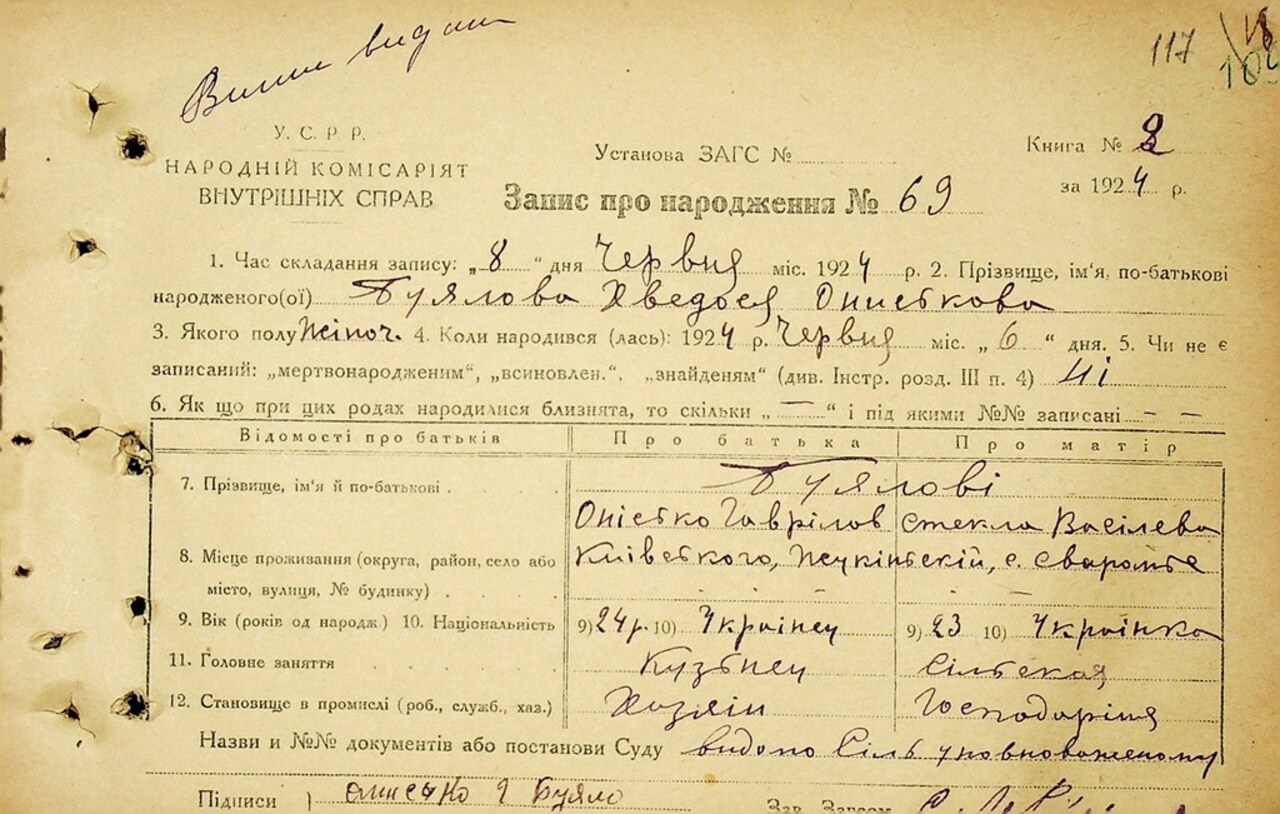 Випис видан
117
18
109
У. С. Р. Р.
НАРОДНІЙ КОМІСАРІЯТ
ВНУТРІШНІХ СПРАВ
Установа ЗАГС №
Книга № 2
за 1924 р.
Запис про народження № 69
1. Час складання запису: „8“ дня Червня міс. 1924 р. 2. Прізвище, ім'я, по-батькові
народженого(ої) Буялова Хведося Описькова
3. Якого полу Жіноч. 4. Коли народився (лась): 1924 р. Червня міс. „6“ дня. 5. Чи не є
записаний: „мертвонародженим“, „всиновлен.“, „знайденям“ (див. Інстр. розд. III п. 4) Ні
6. Як що при цих родах народилися близнята, то скільки „—“ і під якими №№ записані — —
Відомості про батьків Про батька Про матір
7. Прізвище, ім'я й по-батькові Буялові
Опісько Гаврілов Текла Васілева
8. Місце проживання (округа, район, село або Київського, с. Сваромье
місто, вулиця, № будинку)
9. Вік (років од народж.) 10. Національність 9) 24 р. 10) Українец 9) 23 10) Українка
11. Головне заняття Кузьнец Сільская
12. Становище в промислі (роб., служб., хаз.) Хазяін Господаріня
Назви и №№ документів або постанови Суду видано Сіль уповноваженому
Підписи Описько Г Буяло Зав. Загсом